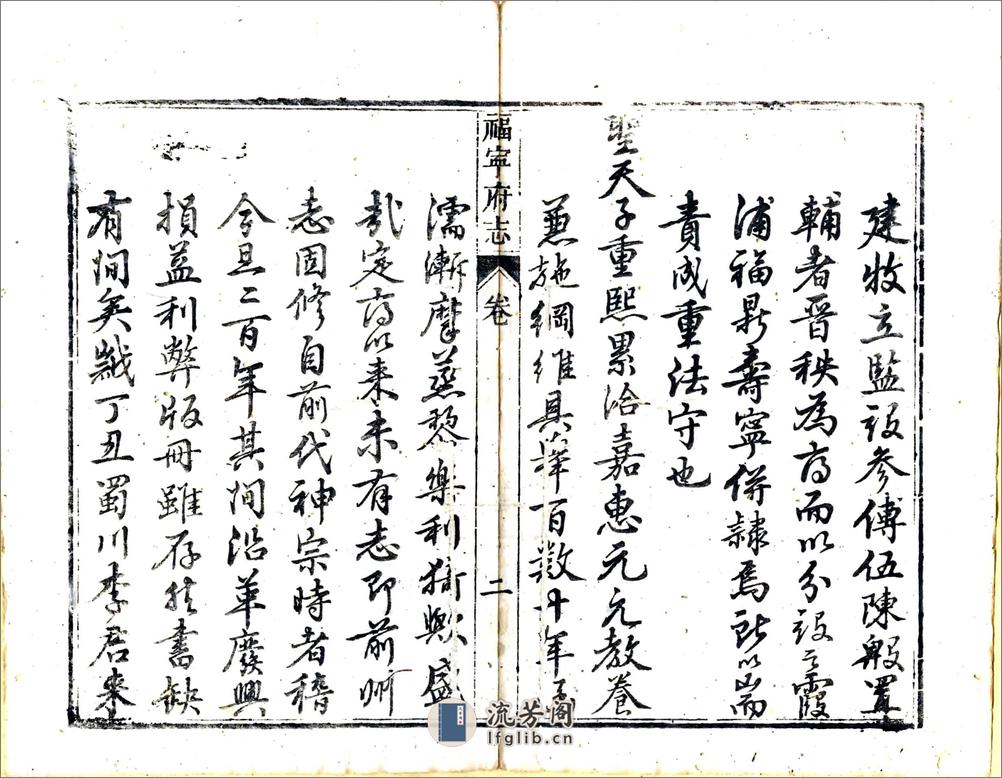 建牧立監設參傅伍陳殷置
輔者晉秩為府而以分設之霞
浦福鼎壽寧併隸焉所以耑
責成重法守也
聖天子重熙累洽嘉惠元元教養
兼施綱維具舉百數十年
濡漸摩蒸黎樂利猗歟盛
哉定府以來未有志即前州
志固修自前代神宗時者稽
今且二百年其間沿革廢興
損益利弊版冊雖存然書缺
有間矣歲丁丑蜀川李君來
福寧府志
卷
二
流芳阁
lfglib.cn